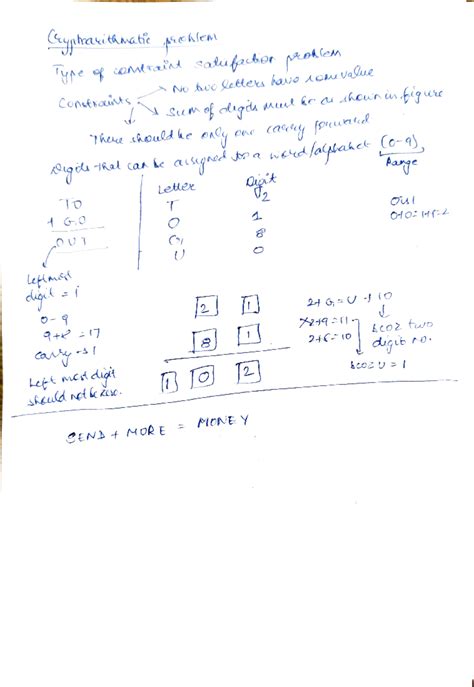 Cryptarithmatic problem
Type of constraint satisfaction problem
Constraints → No two letters have same value
→ Sum of digits must be as shown in figure
There should be only one carry forward
Digits that can be assigned to a word/alphabet (0-9)
Range
Letter Digit
TO T 2 OUT
+ GO O 1 0+0=1+1=2
OUT G 8
U 0
Left most
digit = 1
0-9
9+8=17
carry → 1
Left most digit
should not be zero.
2 1 2+G=U+10
8 1 2+9=11
2+8=10
bcoz two
digit no.
1 0 2 bcoz U=1
SEND + MORE = MONEY